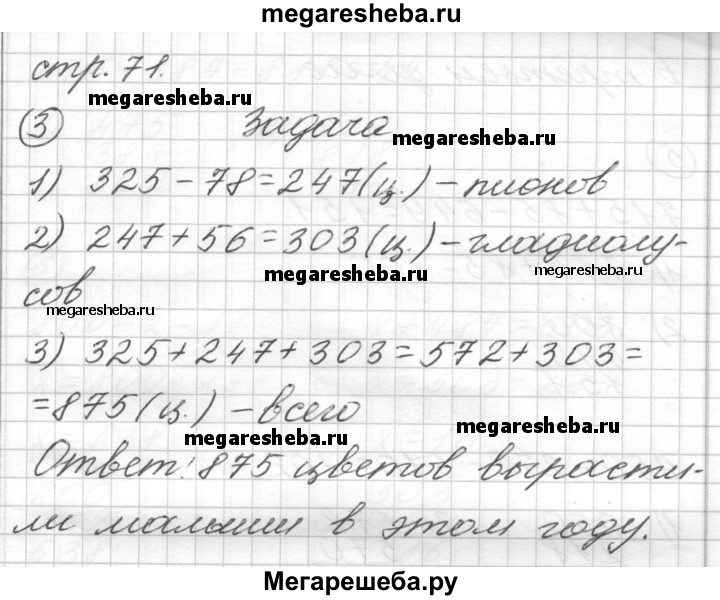 megaresheba.ru
стр. 71.
megaresheba.ru
3 Задача
megaresheba.ru
1) 325 - 78 = 247 (ц.) - пионов
2) 247 + 56 = 303 (ц.) - гладиолу-
megaresheba.ru megaresheba.ru
сов
megaresheba.ru
3) 325 + 247 + 303 = 572 + 303 =
= 875 (ц.) - всего
megaresheba.ru megaresheba.ru
Ответ: 875 цветов вырасти-
ли малыши в этом году.
Мегарешеба.ру